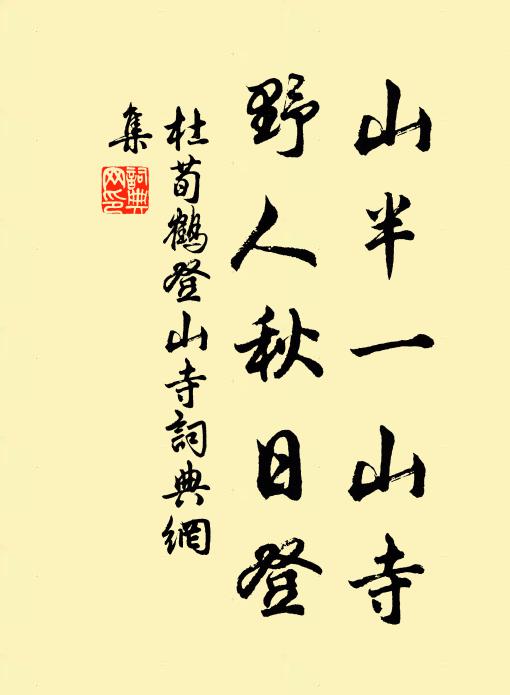 山半一山寺
野人秋日登
杜荀鶴登山寺詞典網
集
詞典网印